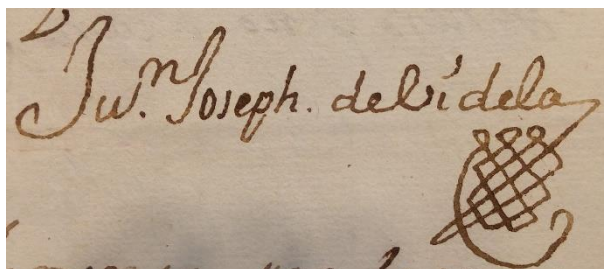 Ju.ⁿ Joseph. de bidela